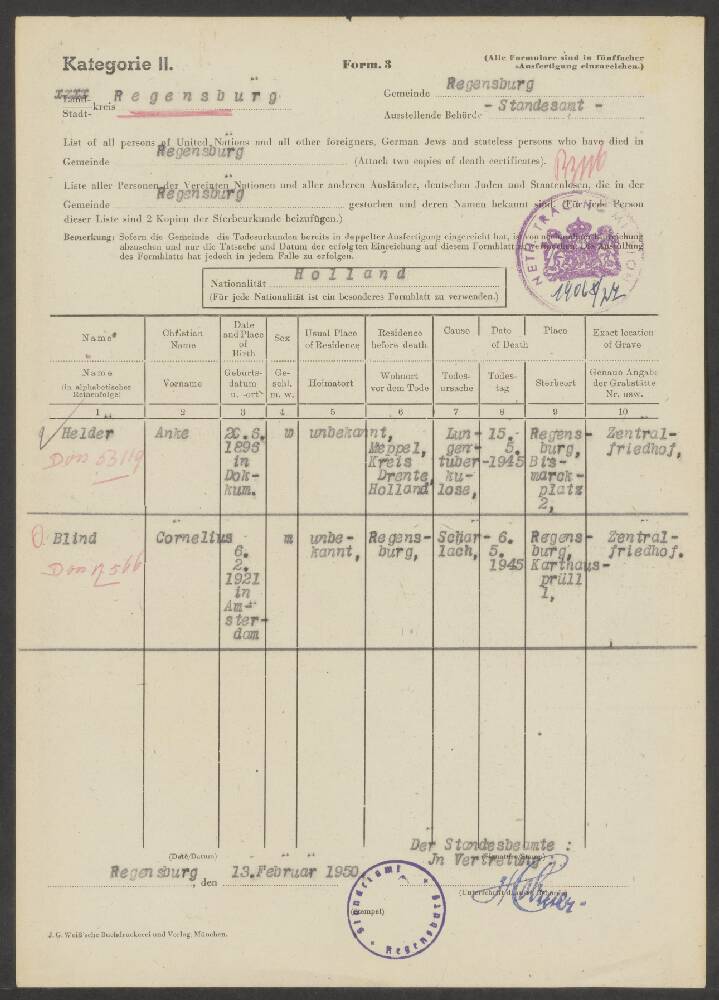 Kategorie II.
Form. 3
(Alle Formulare sind in fünffacher
Ausfertigung einzureichen.)
Land-
Stadt- kreis Regensburg
Gemeinde Regensburg
Ausstellende Behörde - Standesamt -
List of all persons of United Nations and all other foreigners, German Jews and stateless persons who have died in
Gemeinde Regensburg (Attach two copies of death certificates).
Liste aller Personen der Vereinten Nationen und aller anderen Ausländer, deutschen Juden und Staatenlosen, die in der
Gemeinde Regensburg gestorben und deren Namen bekannt sind. (Für jede Person
dieser Liste sind 2 Kopien der Sterbeurkunde beizufügen.)
Bemerkung: Sofern die Gemeinde die Todesurkunden bereits in doppelter Ausfertigung eingereicht hat, ist von
abzusehen und nur die Tatsache und Datum der erfolgten Einreichung auf diesem Formblatt zu vermerken. Die Ausstellung
des Formblatts hat jedoch in jedem Falle zu erfolgen.
NETH. TRACING MISSION
Nationalität Holland
(Für jede Nationalität ist ein besonderes Formblatt zu verwenden.)
Name* Christian Name Date and Place of Birth Sex Usual Place of Residence Residence before death Cause Date Place of Death Exact location of Grave
Name (in alphabetischer Reihenfolge) Vorname Geburtsdatum u. -ort Geschl. m. w. Heimatort Wohnort vor dem Tode Todesursache Todestag Sterbeort Genaue Angabe der Grabstätte Nr. usw.
1 2 3 4 5 6 7 8 9 10
Helder Anke 26.6. w unbekannt, Lun- 15. Regens- Zentral-
1895 Meppel, gen- 5. burg, friedhof,
in Kreis tuber- 1945 Bis-
Dok- Drente, ku- marck-
kum. Holland lose, platz
2,
Blind Cornelius m unbe- Regens- Schar- 6. Regens- Zentral-
6. kannt, burg, lach, 5. burg, friedhof.
2. 1945 Karthaus-
1921 prüll
in 1,
Am-
ster-
dam
(Date/Datum)
Der Standesbeamte :
In Vertretung
Regensburg, den 13. Februar 1950
(Stempel)
Standesamt Regensburg
J. G. Weiß'sche Buchdruckerei und Verlag, München.